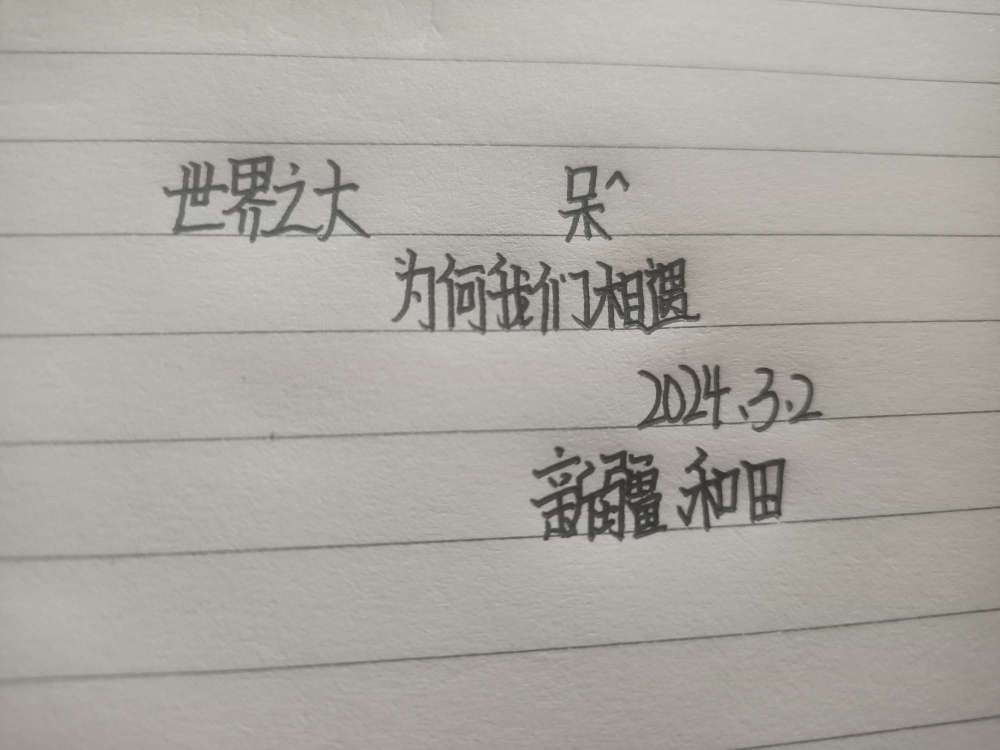 世界之大 呆^
为何我们相遇
2024.3.2
新疆 和田